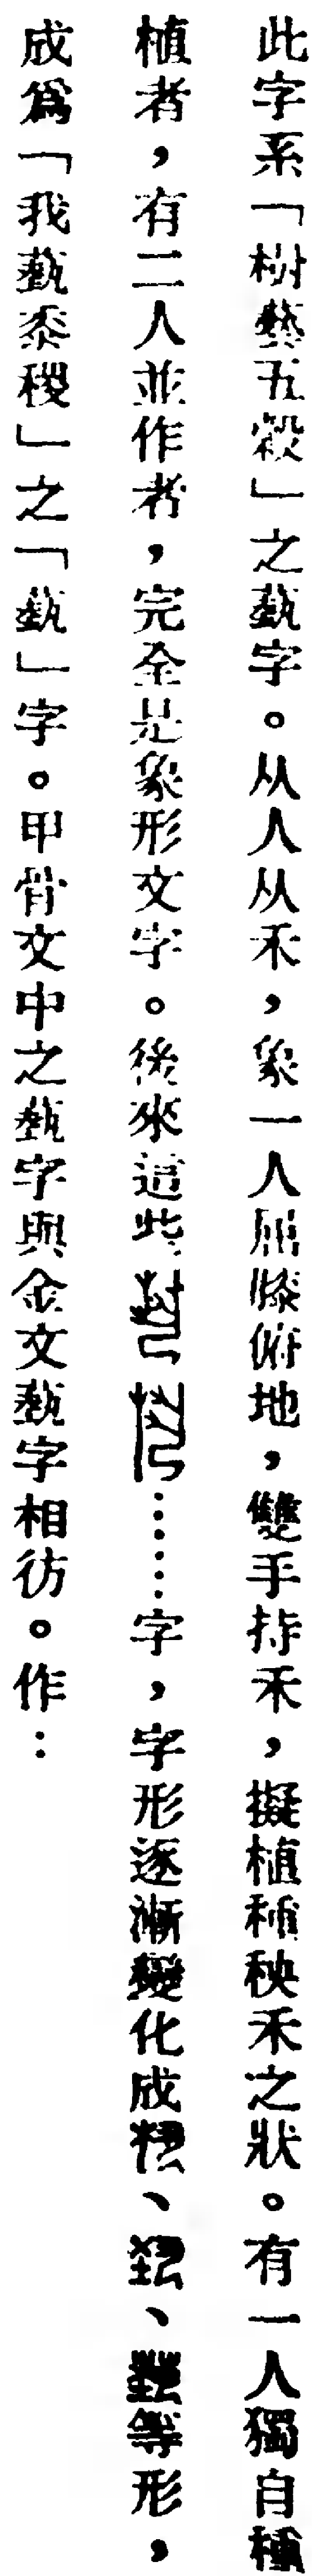 此字系「樹藝五穀」之藝字。从人从禾，象一人屈膝俯地，雙手持禾，擬植種秧禾之狀。有一人獨自種
植者，有二人並作者，完全是象形文字。後來這些……字，字形逐漸變化成、、等形，
成爲「我藝黍稷」之「藝」字。甲骨文中之藝字與金文藝字相彷。作：